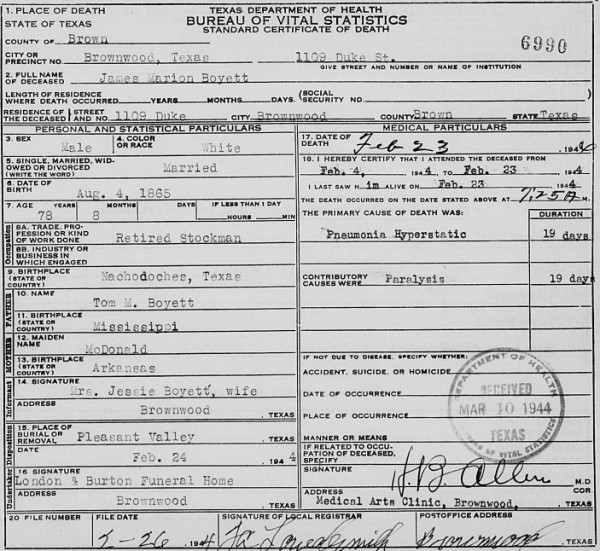 1. PLACE OF DEATH
STATE OF TEXAS
TEXAS DEPARTMENT OF HEALTH
BUREAU OF VITAL STATISTICS
STANDARD CERTIFICATE OF DEATH
COUNTY OF Brown
6990
CITY OR
PRECINCT NO. Brownwood, Texas 1109 Duke St.
GIVE STREET AND NUMBER OR NAME OF INSTITUTION
2. FULL NAME
OF DECEASED James Marion Boyett
LENGTH OF RESIDENCE
WHERE DEATH OCCURRED YEARS MONTHS DAYS
(SOCIAL
SECURITY NO.
RESIDENCE OF (STREET
THE DECEASED (AND NO. 1109 Duke CITY Brownwood COUNTY Brown STATE Texas
PERSONAL AND STATISTICAL PARTICULARS
3. SEX
Male
4. COLOR
OR RACE White
5. SINGLE, MARRIED, WID-
OWED OR DIVORCED
(WRITE THE WORD) Married
6. DATE OF
BIRTH Aug. 4, 1865
7. AGE YEARS MONTHS DAYS IF LESS THAN 1 DAY
78 8 HOURS MIN
Occupation
8A. TRADE, PRO-
FESSION OR KIND
OF WORK DONE Retired Stockman
8B. INDUSTRY OR
BUSINESS IN
WHICH ENGAGED
9. BIRTHPLACE
(STATE OR
COUNTRY) Nachodoches, Texas
FATHER
10. NAME
Tom M. Boyett
11. BIRTHPLACE
(STATE OR
COUNTRY) Mississippi
MOTHER
12. MAIDEN
NAME McDonald
13. BIRTHPLACE
(STATE OR
COUNTRY) Arkansas
Informant
14. SIGNATURE
Mrs. Jessie Boyett, wife
ADDRESS
Brownwood , TEXAS
Disposition
15. PLACE OF
BURIAL OR
REMOVAL Pleasant Valley , TEXAS
DATE
Feb. 24 1944
Undertaker
16 SIGNATURE
London & Burton Funeral Home
ADDRESS
Brownwood , TEXAS
MEDICAL PARTICULARS
17. DATE OF
DEATH Feb 23 194
18. I HEREBY CERTIFY THAT I ATTENDED THE DECEASED FROM
Feb. 4, 1944 TO Feb. 23 1944
I LAST SAW H im ALIVE ON Feb. 23 1944
THE DEATH OCCURRED ON THE DATE STATED ABOVE AT 7:25A M.
THE PRIMARY CAUSE OF DEATH WAS: DURATION
Pneumonia Hyperstatic 19 days
CONTRIBUTORY
CAUSES WERE Paralysis 19 days
IF NOT DUE TO DISEASE, SPECIFY WHETHER:
ACCIDENT, SUICIDE, OR HOMICIDE
DATE OF OCCURRENCE
PLACE OF OCCURRENCE
MANNER OR MEANS
DEPARTMENT OF HEALTH
RECEIVED
MAR 10 1944
TEXAS
BUREAU OF VITAL STATISTICS
IF RELATED TO OCCU-
PATION OF DECEASED,
SPECIFY
SIGNATURE
H B Allen M.D.
ADDRESS COR
Medical Arts Clinic, Brownwood, , TEXAS
20 FILE NUMBER FILE DATE SIGNATURE OF LOCAL REGISTRAR POSTOFFICE ADDRESS
2-26 1944 Brownwood , TEXAS